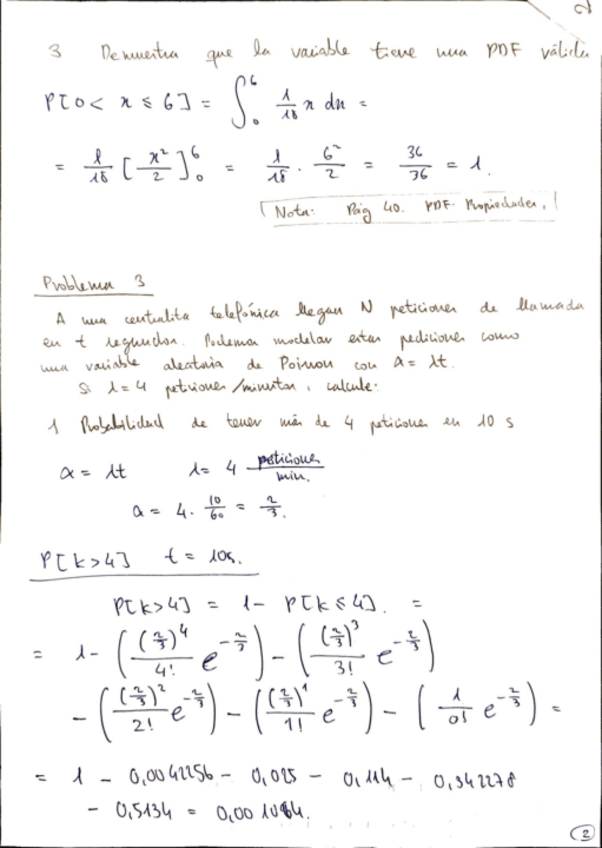 2
3 Demuestra que la variable tiene una PDF válida
P[0 < x ≤ 6] = ∫₀⁶ 1/18 x dx =
= 1/18 [x²/2]₀⁶ = 1/18 · 6²/2 = 36/36 = 1.
Nota: Pág 40. PDF. Propiedades.
Problema 3
A una centralita telefónica llegan N peticiones de llamada
en t segundos. Podemos modelar estas peticiones como
una variable aleatoria de Poisson con a = λt.
Si λ = 4 peticiones/minutos, calcule:
1 Probabilidad de tener más de 4 peticiones en 10 s
α = λt λ = 4 peticiones/min.
a = 4 · 10/60 = 2/3.
P[k>4] t = 10s.
P[k>4] = 1 - P[k≤4]. =
= 1 - ((2/3)⁴/4! e^(-2/3)) - ((2/3)³/3! e^(-2/3))
- ((2/3)²/2! e^(-2/3)) - ((2/3)¹/1! e^(-2/3)) - (1/0! e^(-2/3)) =
= 1 - 0,0042256 - 0,025 - 0,114 - 0,342278
- 0,5134 = 0,001084.
2